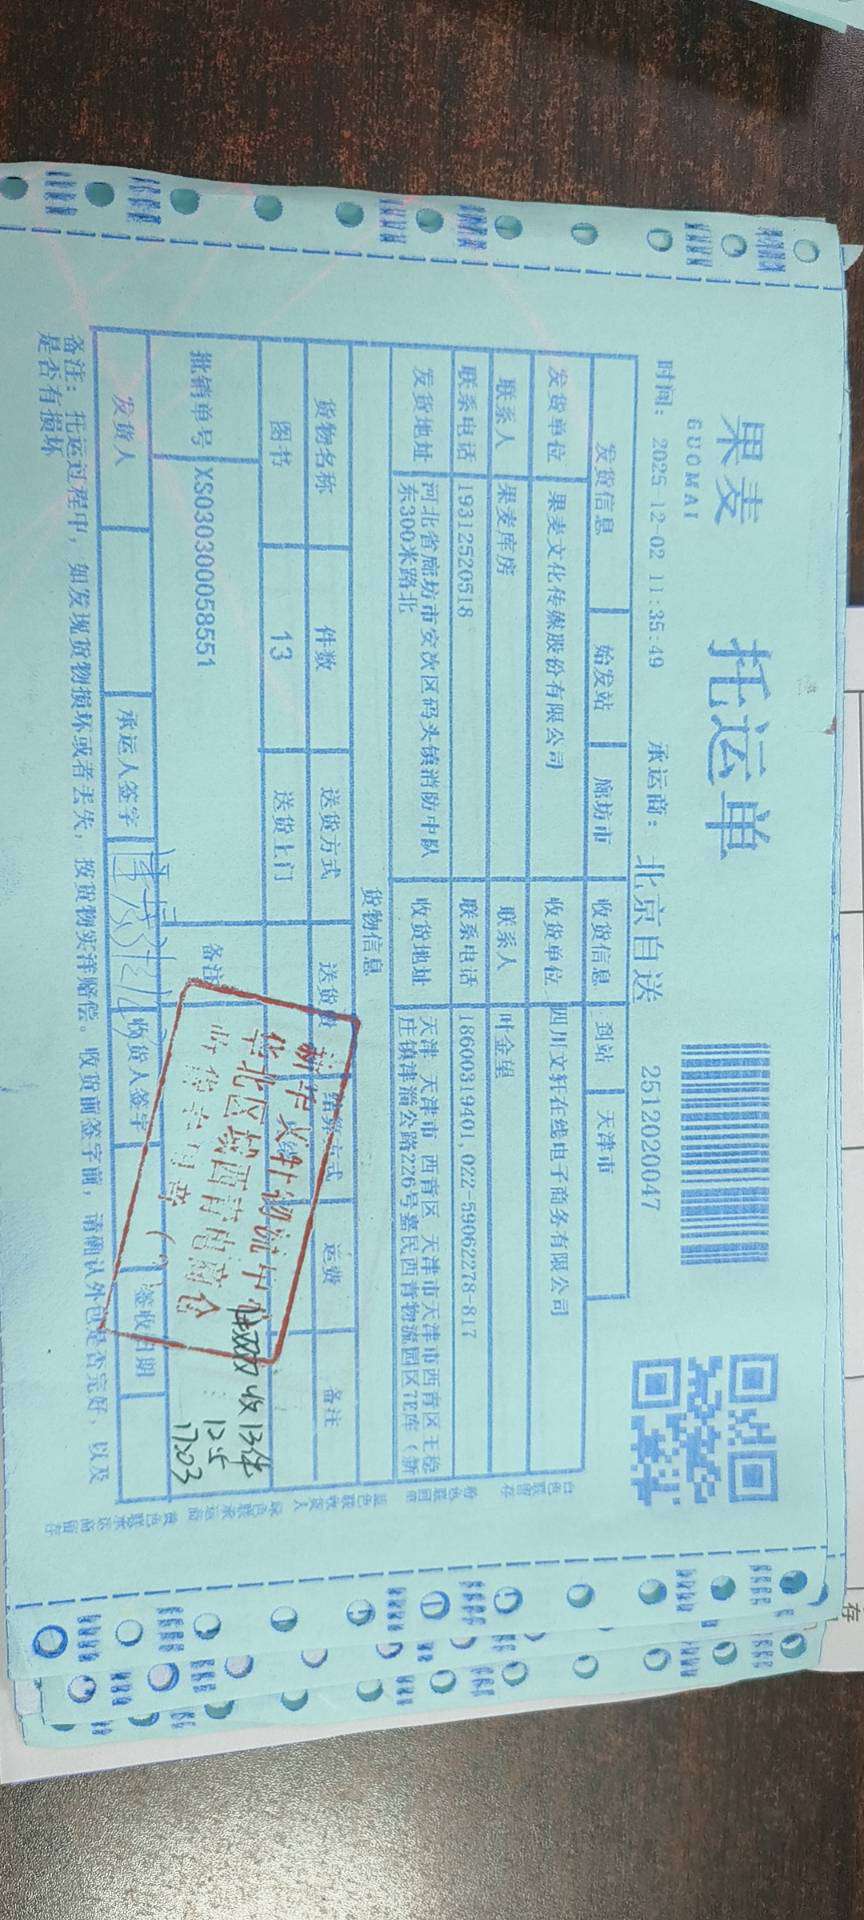 果麦
GUOMAI
托运单
时间: 2025-12-02 11:35:49 承运商: 北京自送 2512020047
发货信息 始发站 廊坊市 收货信息 到站 天津市
发货单位 果麦文化传媒股份有限公司 收货单位 四川文轩在线电子商务有限公司
联系人 果麦库房 联系人 叶金星
联系电话 19312520518 联系电话 18600319401,022-59062278-817
发货地址 河北省廊坊市安次区码头镇消防中队东300米路北 收货地址 天津 天津市 西青区 天津市天津市西青区王稳庄镇津淄公路226号嘉民西青物流园区7E库(新
货物信息
货物名称 件数 送货方式 送货 结算方式 运费 备注
图书 13 送货上门
批销单号 XS030300058551 备注
新华文轩物流中心
华北区域西青电商仓
收货专用章
收13件
12.5
17:03
发货人 承运人签字 收货人签字 签收日期
备注: 托运过程中, 如发现货物损坏或者丢失, 按货物实洋赔偿。收货前签字前, 请确认外包是否完好, 以及
是否有损坏
白色联留存
粉色联回单
蓝色联收货人
绿色联承运商
黄色联承运商留存
存